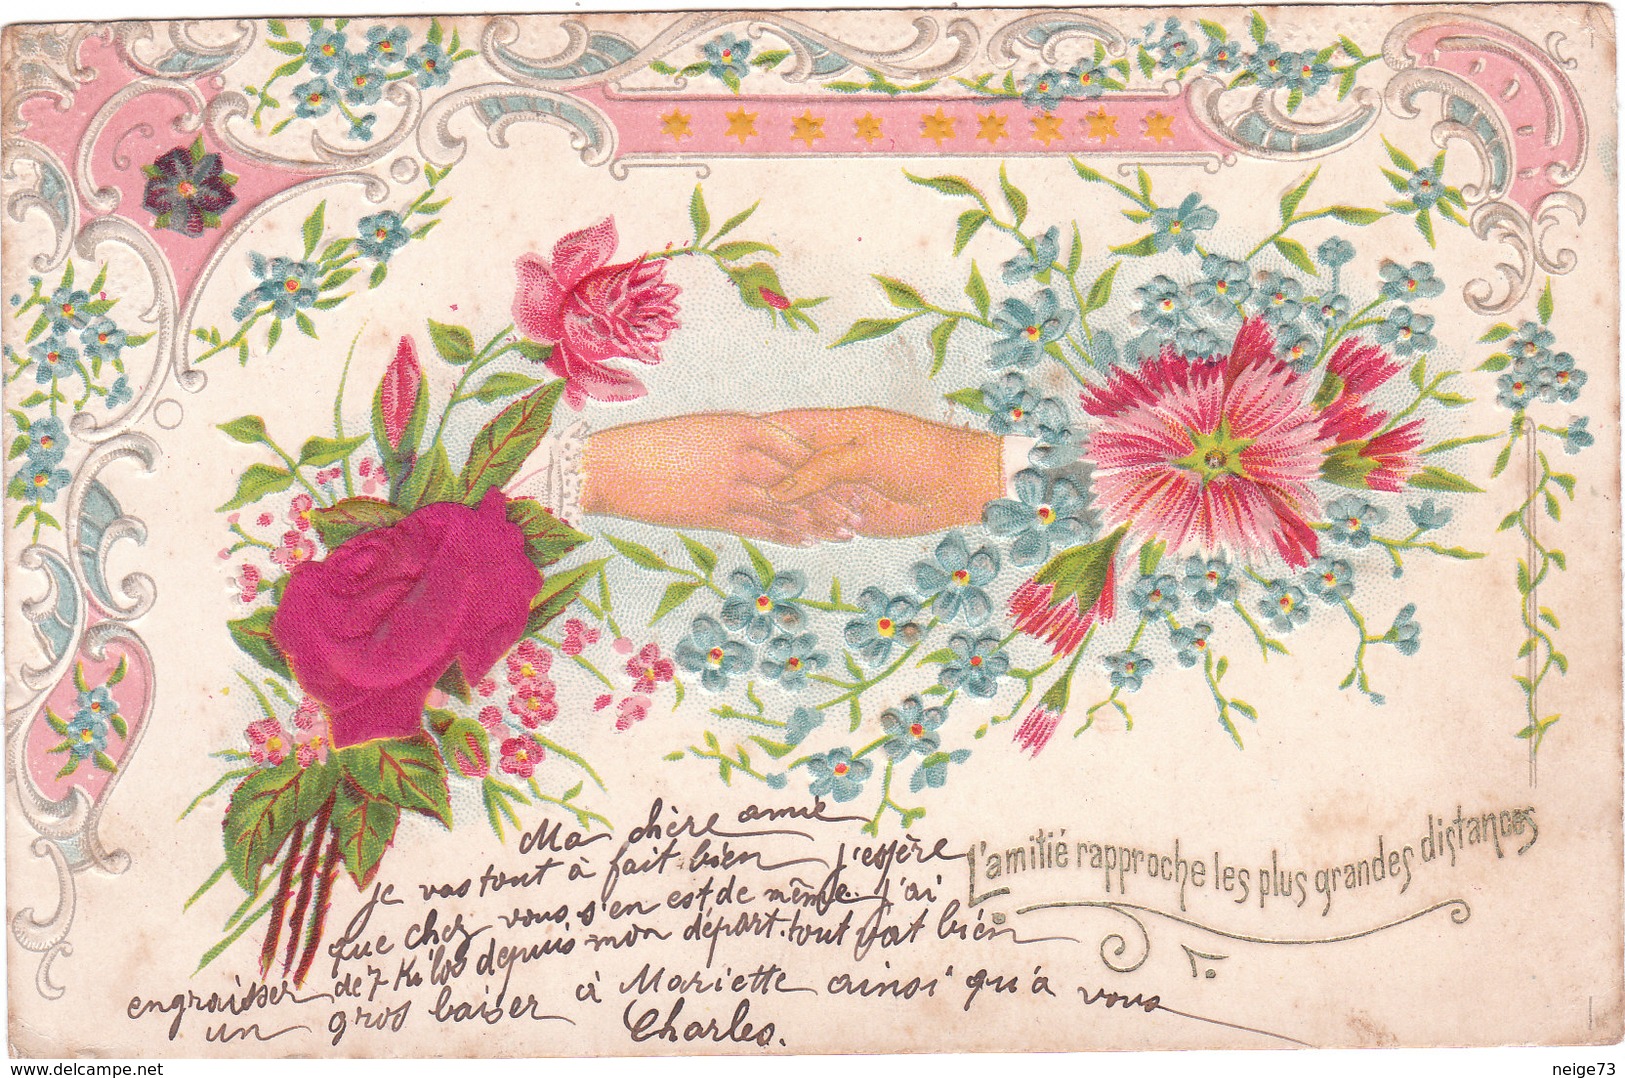 Ma chère amie
je vas tout à fait bien j'espère
que chez vous s'en est de même. j'ai
engraisser de 7 Kilos depuis mon départ. tout vat bien
un gros baiser à Mariette ainsi qu'a vous
Charles.
L'amitié rapproche les plus grandes distances
www.delcampe.net
neige73